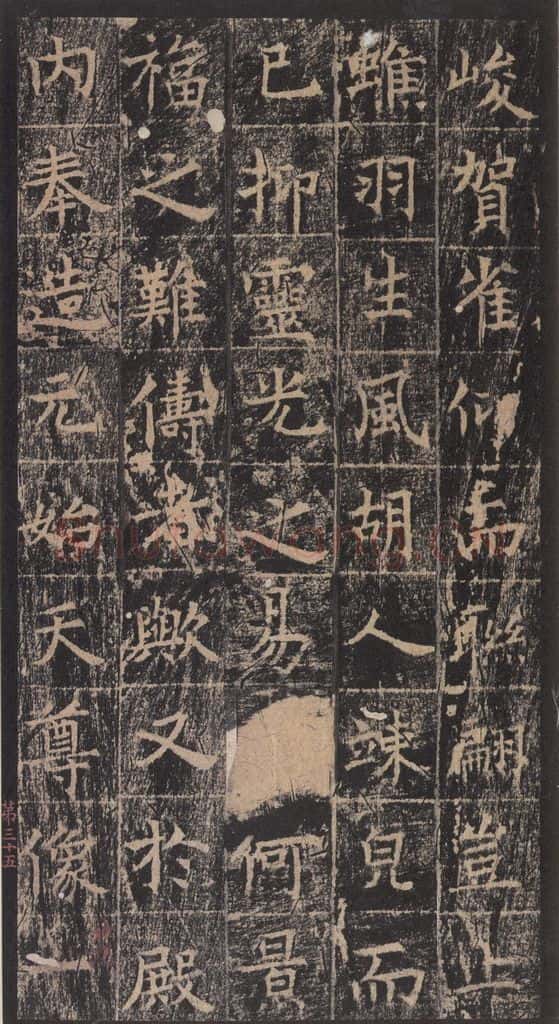 峻賀雀仰而聯翩豈止
羽生風胡人竦皃而
已抑靈光之易何景
福之難儔者歟又於殿
內奉造元始天尊像一
第三十五